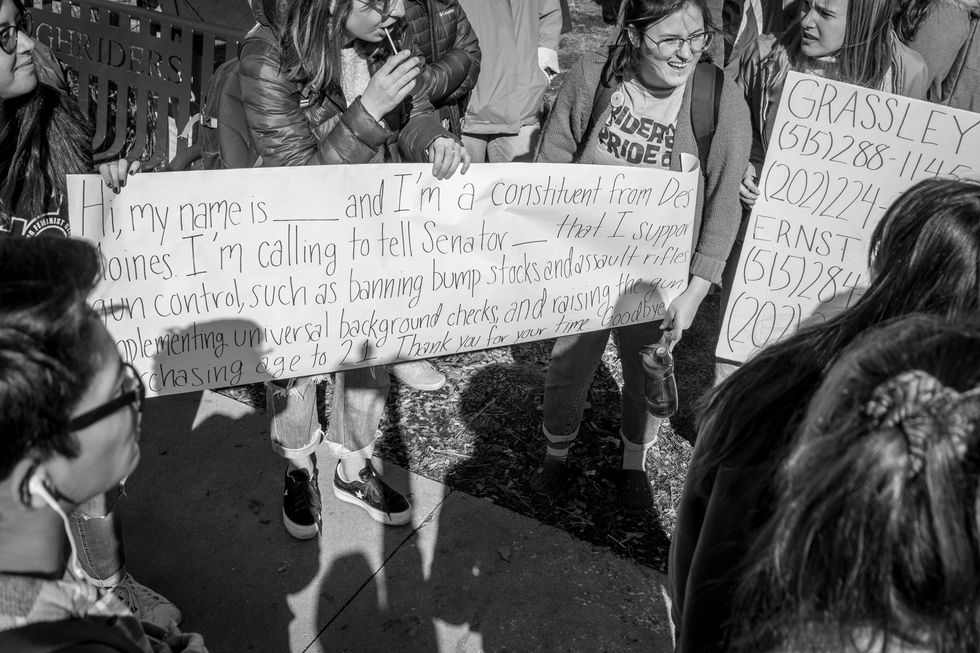 GHRIDERS
RIDERS
PRIDE
Hi, my name is ____ and I'm a constituent from Des
Moines. I'm calling to tell Senator __ that I suppor
gun control, such as banning bump stocks and assault rifles
mplementing universal background checks, and raising the gun
chasing age to 21. Thank you for your time. Goodbye
GRASSLEY
(515) 288-1145
(202) 224-
ERNST
(515) 284
(202)
FEMINIST